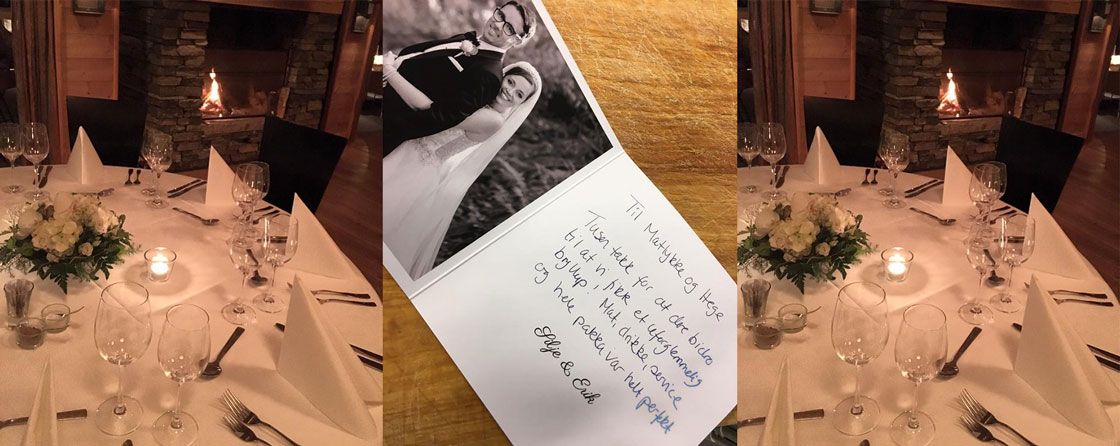 Til Matlykke og Hege
Tusen takk for at dere bidro
til at vi fikk et uforglemmelig
bryllup! Mat, drikke, service
og hele pakka var helt perfekt
Silje & Erik